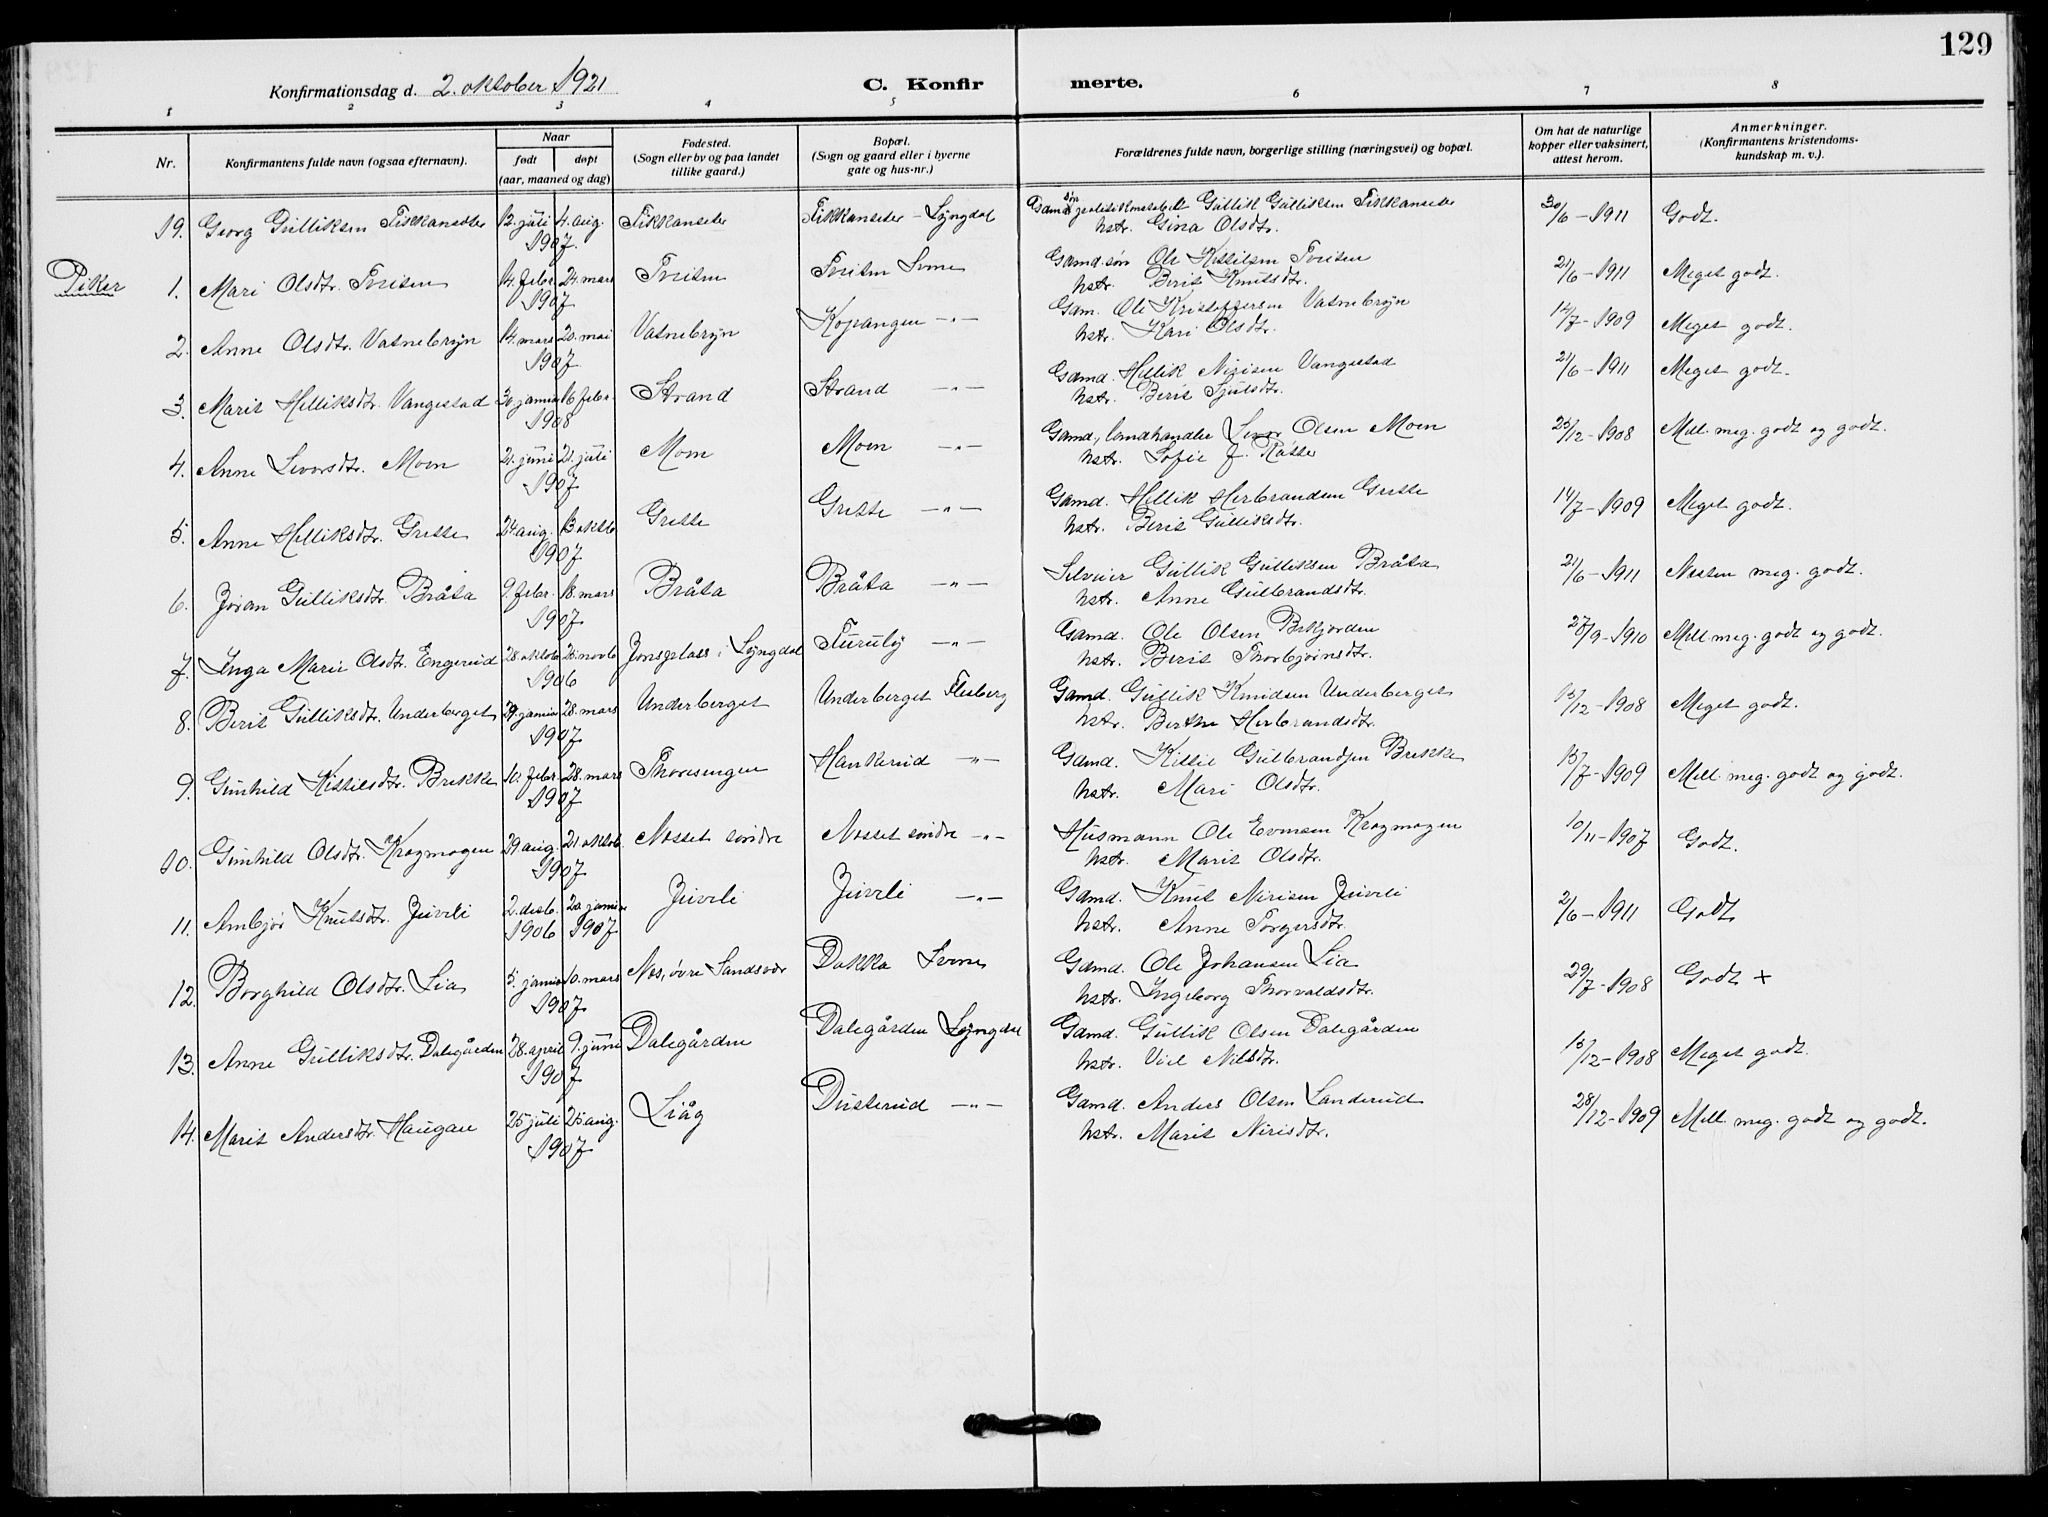 129
Konfirmationsdag d. 2. oktober 1921
C. Konfir merte.
1 2 3 4 5 6 7 8
Nr.
Konfirmantens fulde navn (ogsaa efternavn).
Naar
født døpt
(aar, maaned og dag)
Fødested.
(Sogn eller by og paa landet
tillike gaard.)
Bopæl.
(Sogn og gaard eller i byerne
gate og hus-nr.)
Forældrenes fulde navn, borgerlige stilling (næringsvei) og bopæl.
Om hat de naturlige
kopper eller vaksinert,
attest herom.
Anmerkninger.
(Konfirmantens kristendoms-
kundskap m. v.).
19. Georg Gulliksen Fikkanseter 12. juli 4. aug. Fikkanseter Fikkanseter - Lyngdal Gamd Gullik Gulliksen Fikkanseter 30/6 - 1911 Godt.
1907. hstr. Gina Olsdtr.
Piker
1. Mari Olsdtr. Tveiten 14. febr. 24. mars Tveiten Tveiten Svene Gamd. søn Ole Kittilsen Tveiten 21/6 - 1911 Meget godt.
1907 hstr. Berit Knutsdtr.
2. Anne Olsdtr. Vatnebryn 14. mars 20. mai Vatnebryn Kopangen -"- Gam. Ole Kristoffersen Vatnebryn 14/7 - 1909 Meget godt.
1907 hstr. Kari Olsdtr.
3. Marit Helliksdtr. Vangestad 30. januar 16 febr. Strand Strand -"- Gamd. Hellik Nirisen Vangestad 21/6 - 1911 Meget godt.
1908 hstr. Berit Sjulsdtr.
4. Anne Liversdtr. Moen 21. juni 21. juli Moen Moen -"- Gamd., landhandler Olsen Moen 23/12 - 1908 Mell. meg. godt og godt.
1907 hstr. Sofie J.
5. Anne Helliksdtr. Grette 24. aug. 13 oktb Grette Grette -"- Gamd. Hellik Herbrandsen Grette 14/7 - 1909 Meget godt.
1907 hstr. Berit Gulliksdtr.
6. Joran Gulliksdtr. Bråta 9. febr. 18. mars Bråta Bråta -"- Selveier Gullik Gulliksen Bråta 21/6 - 1911 Nesten meg. godt.
1907 hstr. Anne Gulbrandsdtr.
7. Inga Marie Olsdtr. Engerud 28 oktob 25. novb Jonsplass i Lyngdal Furuly -"- Gamd. Ole Olsen Bekjorden 27/9 - 1910 Mell. meg. godt og godt.
1906 hstr. Berit Thorbjørnsdtr.
8. Berit Gulliksdtr. Underberget 29. januar 28. mars Underberget Underberget Flesberg Gamd. Gullik Knudsen Underberget 15/12 - 1908 Meget godt.
1907 hstr. Berthe Herbrandsdtr.
9. Gunhild Kittilsdtr. Brekke 10. febr. 28. mars Thoresengen Hankerud -"- Gamd. Kittil Gulbrandsen Brekke 15/7 - 1909 Mell. meg. godt og godt.
1907 hstr. Mari Olsdtr.
10. Gunhild Olsdtr. Kragmogen 29 aug. 21 oktob. Nesset søndre Nesset søndre -"- Husmann Ole Evensen Kragmogen 10/11 - 1907 Godt.
1907 hstr. Marit Olsdtr.
11. Ambjør Knutsdtr. Juveli 2. desb. 20. januar Juveli Juveli -"- Gamd. Knut Nirisen Juveli 21/6 - 1911 Godt
1906 1907 hstr. Anne Torgersdtr.
12. Borghild Olsdtr. Lia 5. januar 10. mars Nes, øvre Sandsvær Dokka Svene Gamd. Ole Johansen Lia 29/7 - 1908 Godt +
1907 hstr. Ingeborg Thorvaldsdtr.
13. Anne Gulliksdtr. Dalegården 28. april 9. juni Dalegården Dalegården Lyngdal Gamd. Gullik Olsen Dalegården 15/12 - 1908 Meget godt.
1907 hstr. Viel Nilsdtr.
14. Marit Andersdtr. Haugan 25 juli 25 aug. Liåg Dusterud -"- Gamd. Anders Olsen Landerud 28/12 - 1909 Mell. meg. godt og godt.
1907 hstr. Marit Nirisdtr.